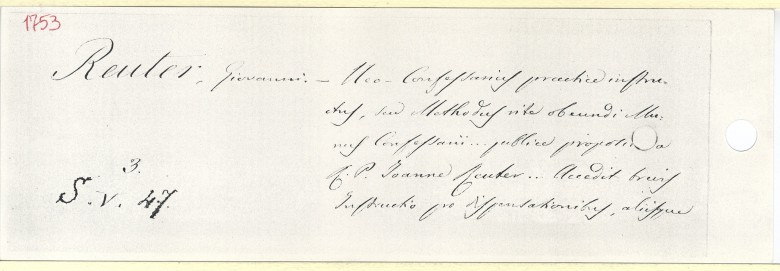 1753
Reuter, Giovanni. — Neo-Confessarius practice instru-
ctus, seu Methodus rite obeundi Mu-
nus Confessarii... publice proposita a
R. P. Joanne Reuter.. Accedit brevis
Instructio pro dispensationibus, aliisque
3.
S. V. 47.